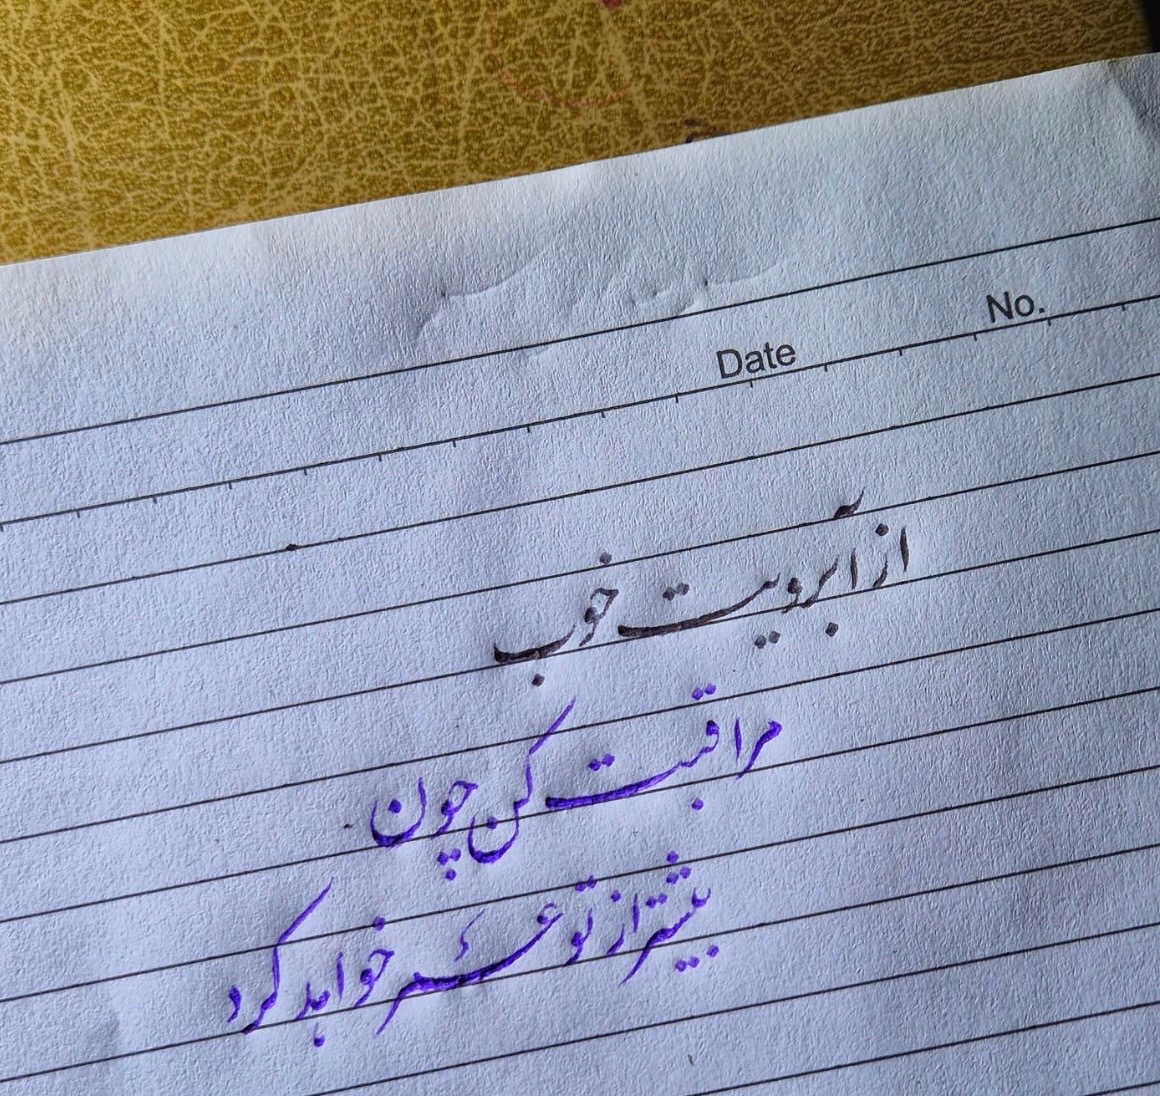 No.
Date
از آبرویت خوب
مراقبت کن چون
بیشتر از تو عمر خواهد کرد